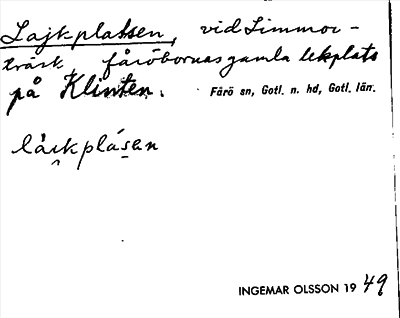 Lajkplatsen, vid Limmor-
träsk, fåröbornas gamla lekplats
på Klinten.
Fårö sn, Gotl. n. hd, Gotl. län.
låi̯kplásen
INGEMAR OLSSON 19 49